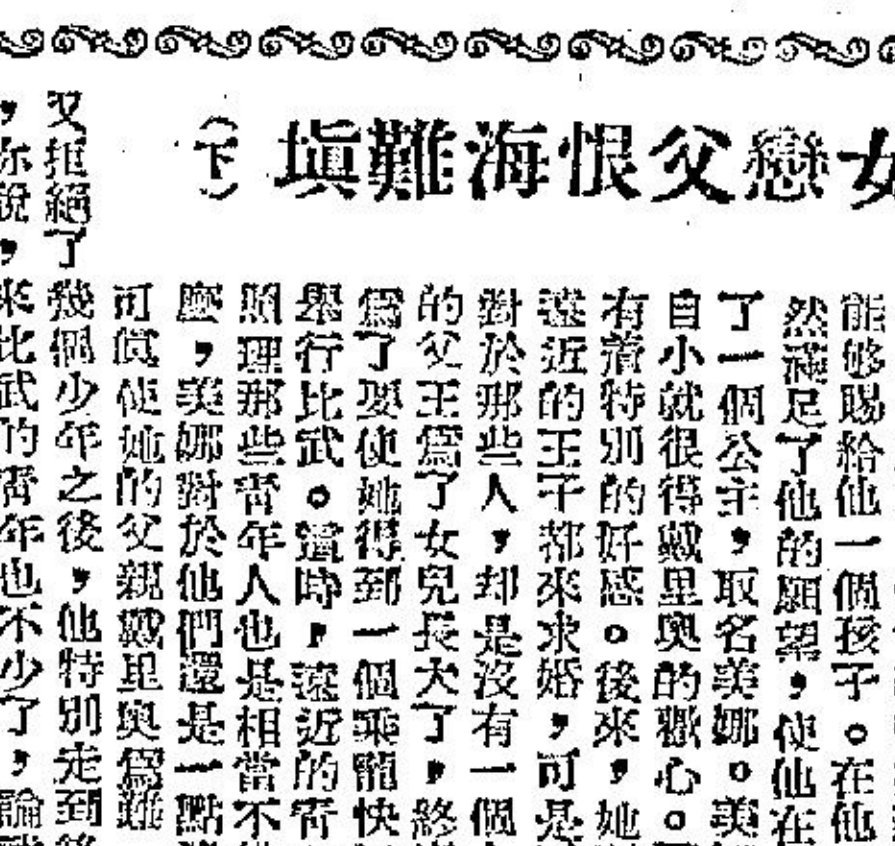 女戀父恨海難塡
(下)
能够賜給他一個孩子。在他
然滿足了他的願望,使他在
了一個公主,取名美娜。美
自小就很得戴里奧的歡心。
有着特別的好感。後來,她
遠近的王子都來求婚,可是
對於那些人,却是沒有一個
的父王爲了女兒長大了,終
爲了要使她得到一個乘龍快
舉行比武。這時,遠近的靑
照理那些靑年人也是相當不
麼,美娜對於他們還是一點
可眞使她的父親戴里奧爲難
又拒絕了幾個少年之後,他特別走到
,你說,來比武的靑年也不少了,論